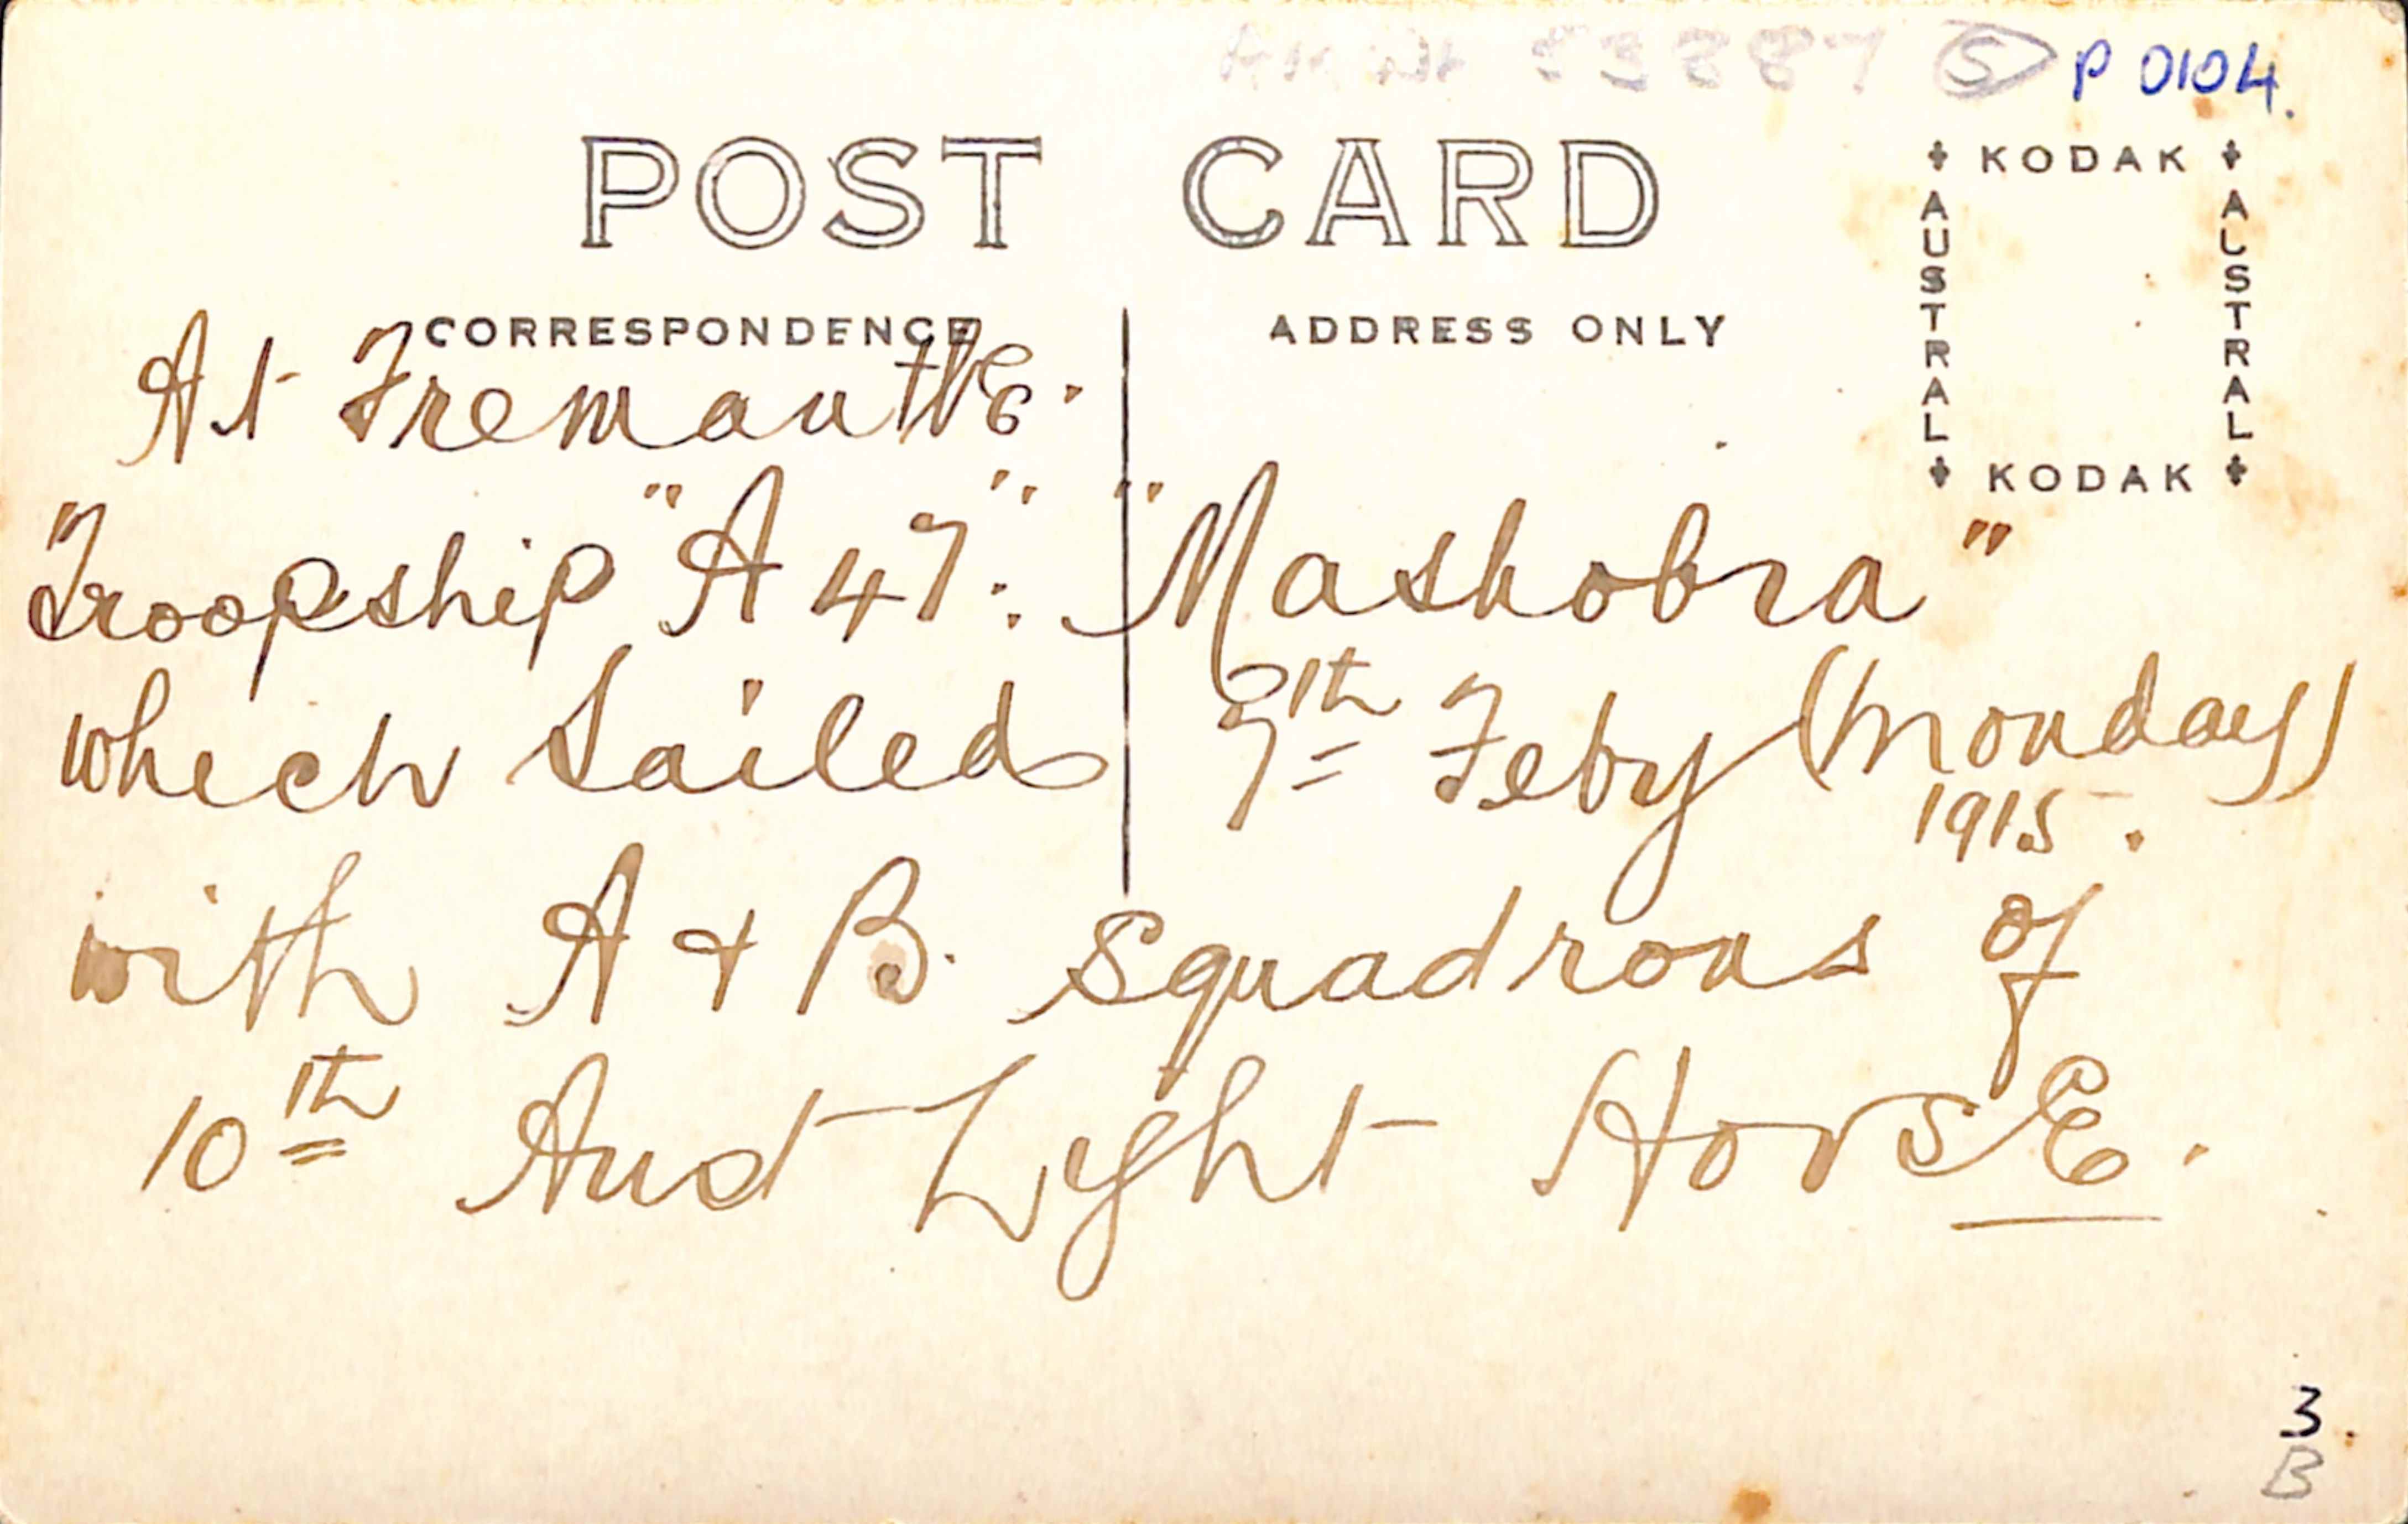 53887 S P 0104.
POST CARD
KODAK
AUSTRAL
AUSTRAL
KODAK
CORRESPONDENCE
ADDRESS ONLY
At Fremantle.
Troopship "A 47". "Mashobra"
which Sailed 7th Feby (Monday)
1915.
with A + B. Squadrons of
10th Aust Light Horse.
3.
B